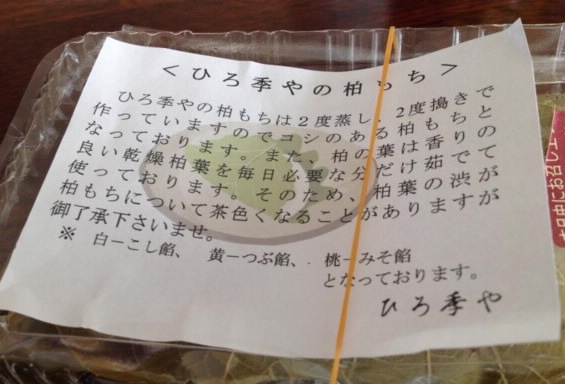 ＜ひろ季やの柏もち＞
ひろ季やの柏もちは２度蒸し、２度搗きで
作っていますのでコシのある柏もちと
なっております。また、柏の葉は香りの
良い乾燥柏葉を毎日必要な分だけ茹でて
使っております。そのため、柏葉の渋が
柏もちについて茶色くなることがありますが
御了承下さいませ。
※　白－こし餡、　黄－つぶ餡、　桃－みそ餡
となっております。
ひろ季や